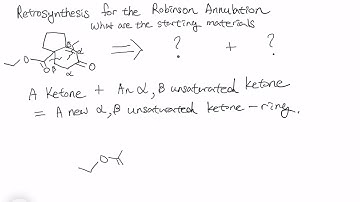 Retrosynthesis for the Robinson Annulation
What are the starting materials
β α
O O α O
⇒ ? + ?
A Ketone + An α, β unsaturated ketone
= A new α, β unsaturated ketone - ring.
O